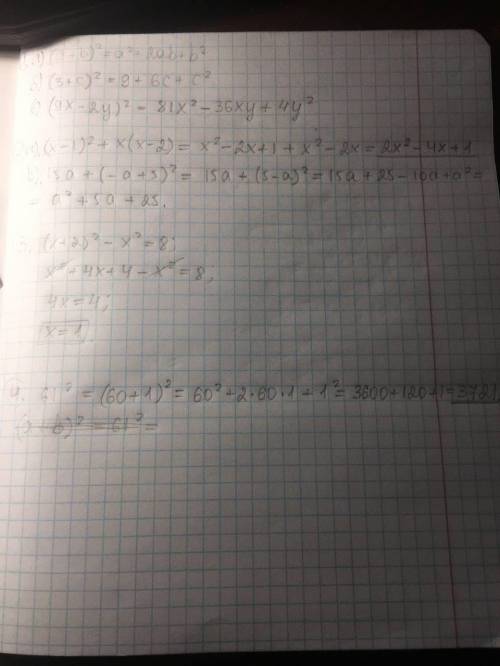 (a-b)²=a²-2ab+b²
б) (3+c)²=9+6c+c²
в) (9x-2y)²=81x²-36xy+4y²
(x-1)²+x(x-2)=x²-2x+1+x²-2x=2x²-4x+1
б) 15a+(-a+5)²=15a+(5-a)²=15a+25-10a+a²=
=a²+5a+25.
3. (x+2)²-x²=8;
x²+4x+4-x²=8;
4x=4;
x=1.
4. 61²=(60+1)²=60²+2·60·1+1²=3600+120+1=3721